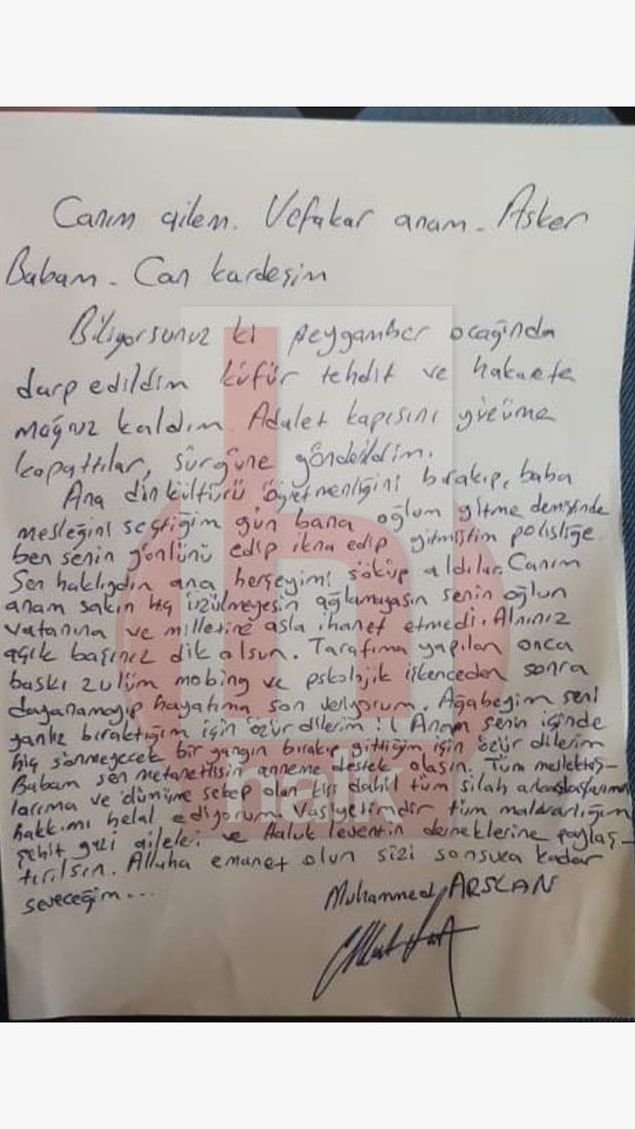 Canım ailem. Vefakar anam. Asker
Babam. Can kardeşim
Biliyorsunuz ki peygamber ocağında
darp edildim küfür tehdit ve hakarete
mağruz kaldım. Adalet kapısını yüzüme
kapattılar, sürgüne gönderildim.
Ana din kültürü öğretmenliğini bırakıp, baba
mesleğini seçtiğim gün bana oğlum gitme demişinde
ben senin gönlünü edip ikna edip gitmiştim polisliğe.
Sen haklıydın ana herşeyimi söküp aldılar. Canım
anam sakın hiç üzülmeyesin ağlamayasın senin oğlun
vatanına ve milletine asla ihanet etmedi. Alnınız
açık başınız dik olsun. Tarafıma yapılan onca
baskı zulüm mobing ve pskolojik işkenceden sonra
dayanamayıp hayatıma son veriyorum. Ağabeyim seni
yanlız bıraktığım için özür dilerim!! Anam senin içinde
hiç sönmeyecek bir yangın bırakıp gittiğim için özür dilerim
Babam sen metanetlisin anneme destek olasın. Tüm meslektaş-
larıma ve ölümüme sebep olan kişi dahil tüm silah arkadaşlarıma
hakkımı helal ediyorum. Vasiyetimdir tüm malvarlığım
şehit gazi aileleri ve Haluk levent'in derneklerine paylaş-
tırılsın. Allaha emanet olun sizi sonsuza kadar
seveceğim...
Muhammed ARSLAN
halk